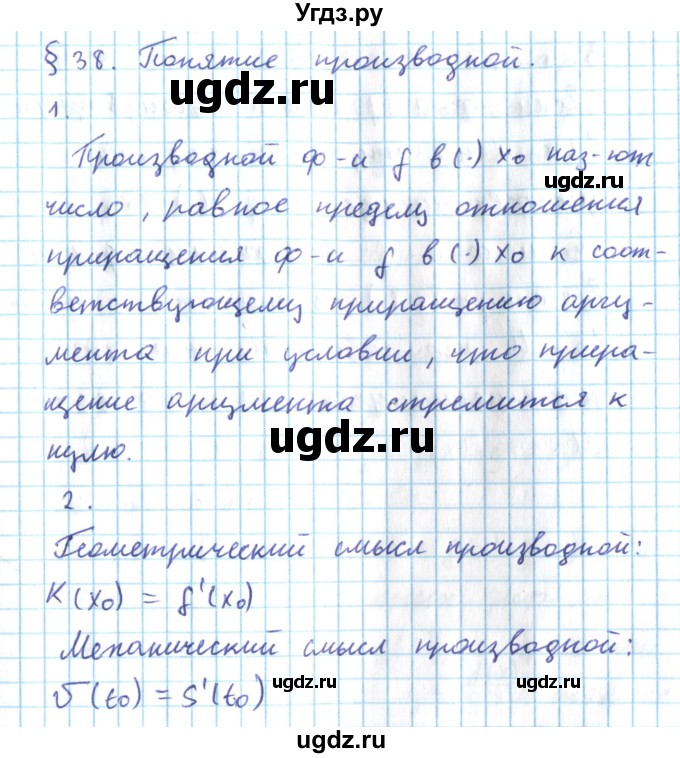 Угдз.ру
§ 38. Понятие производной.
ugdz.ru
1.
Производной ф-и f в (·) x₀ наз-ют
ugdz.ru
число, равное пределу отношения
приращения ф-и f в (·) x₀ к соот-
ветствующему приращению аргу-
мента при условии, что прира-
щение аргумента стремится к
ugdz.ru
нулю.
2.
Геометрический смысл производной:
K(x₀) = f'(x₀)
Механический смысл производной:
ugdz.ru ugdz.ru
v(t₀) = S'(t₀)
ugdz.ru